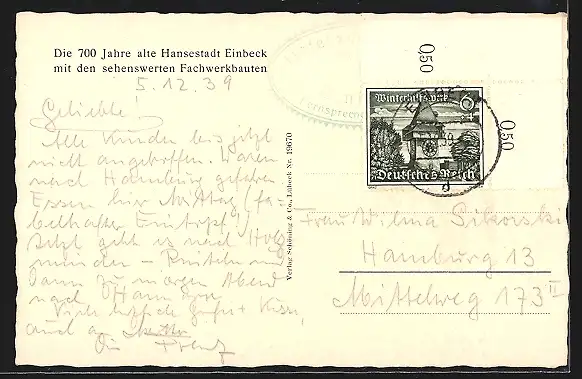 Die 700 Jahre alte Hansestadt Einbeck
mit den sehenswerten Fachwerkbauten
5.12.39
Geliebte!
Alle Kunden bis jetzt
nicht angetroffen. Waren
nach Hamburg gefahren.
Essen hier Mittag (fa-
belhafter Eintopf!)
Jetzt geht es nach Holz
minden –
Dann zu morgen Abend
nach Hann
Viele herzliche Grüße + Küsse,
auch an Mutter
Dein
Verlag Schöning & Co., Lübeck Nr. 19670
Fernsprecher
0,50
0,50
Winterhilfswerk
6+4
Deutsches Reich
Frau Wilma Sikorski
Hamburg 13
Mittelweg 173 II